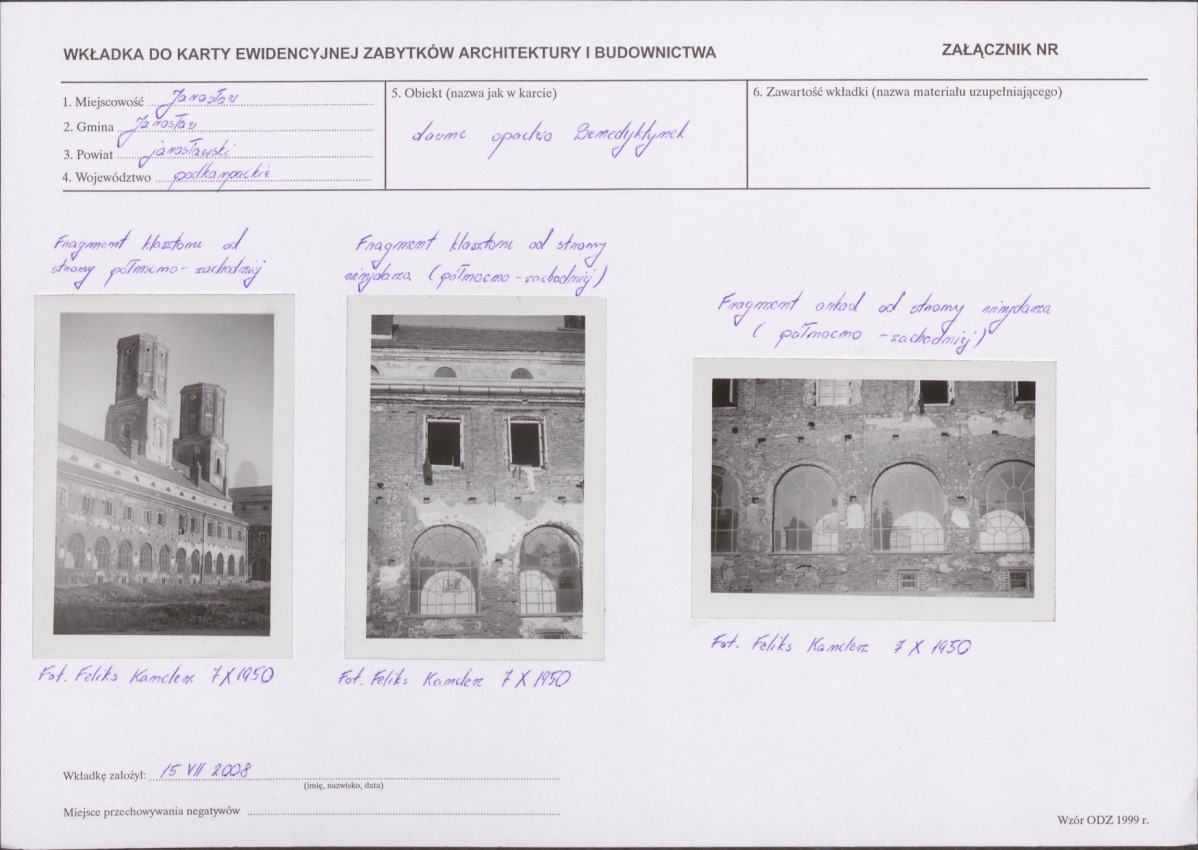 WKŁADKA DO KARTY EWIDENCYJNEJ ZABYTKÓW ARCHITEKTURY I BUDOWNICTWA
ZAŁĄCZNIK NR
1. Miejscowość Jarosław
2. Gmina Jarosław
3. Powiat jarosławski
4. Województwo podkarpackie
5. Obiekt (nazwa jak w karcie)
dawne opactwo Benedyktynek
6. Zawartość wkładki (nazwa materiału uzupełniającego)
Fragment klasztoru od
strony północno-zachodniej
Fragment klasztoru od strony
wirydarza (północno-zachodniej)
Fragment arkad od strony wirydarza
(północno-zachodniej)
Fot. Feliks Kanclerz 7 X 1950
Fot. Feliks Kanclerz 7 X 1950
Fot. Feliks Kanclerz 7 X 1950
Wkładkę założył: 15 VII 2008
(imię, nazwisko, data)
Miejsce przechowywania negatywów
Wzór ODZ 1999 r.